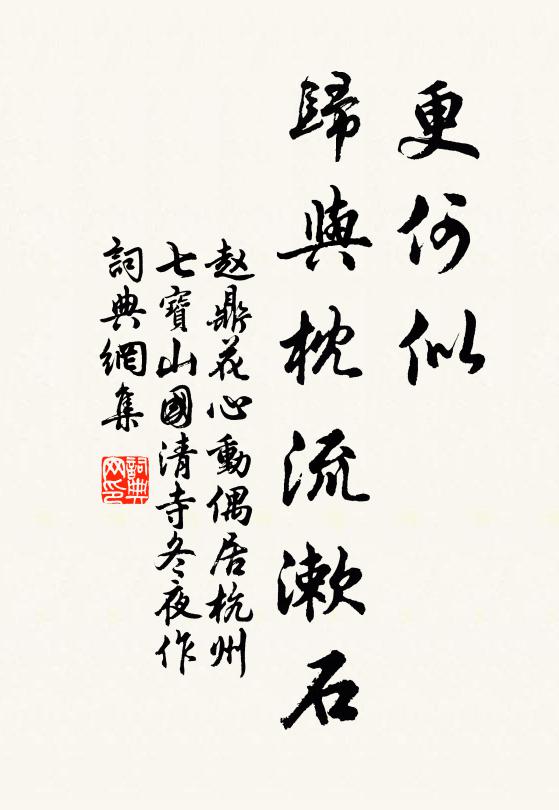 更何似
歸與枕流漱石
赵鼎花心動偶居杭州
七寶山國清寺冬夜作
詞典網集
詞典网印